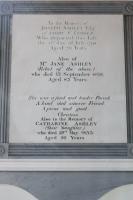 In the Memory of
JOSEPH ASHLEY Esq.
Who Departed this Life
Aged 79 Years
Also of
Mrs JANE ASHLEY
(Relict of the above)
who died 13 September
Aged 83 Years
She was a fond and tender Parent
A kind and sincere Friend
A pious and good
Christian
Also to the Memory of
CATHARINE ASHLEY
(their Daughter)
who died 29th May 1855
Aged 86 Years